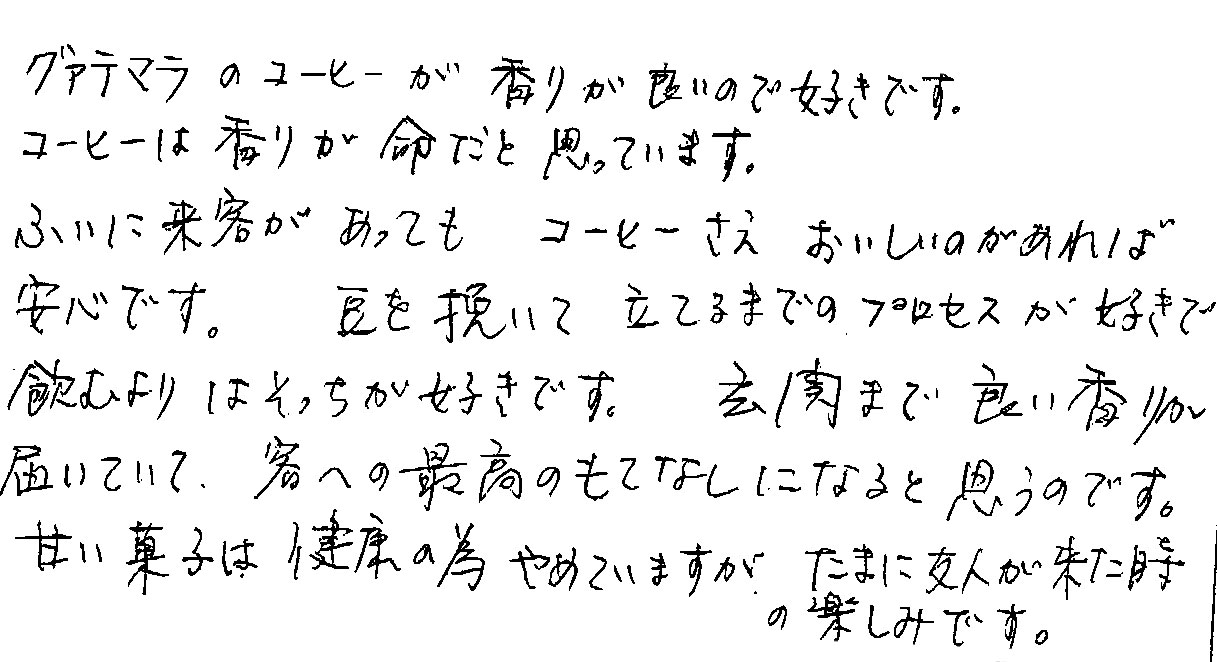 グァテマラのコーヒーが香りが良いので好きです。
コーヒーは香りが命だと思っています。
ふいに来客があっても コーヒーさえ おいしいのがあれば
安心です。 豆を挽いて 立てるまでのプロセスが好きで
飲むよりはそっちが好きです。 玄関まで良い香りが
届いていて、客への最高のもてなしになると思うのです。
甘い菓子は健康の為やめていますが、たまに友人が来た時
の楽しみです。